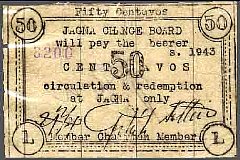 Fifty Centavos
50 JAGNA CHANGE BOARD 50
will pay the bearer
s. 1943
CENT 50 VOS
circulation & redemption
at JAGNA only
L Member Chairman Member L